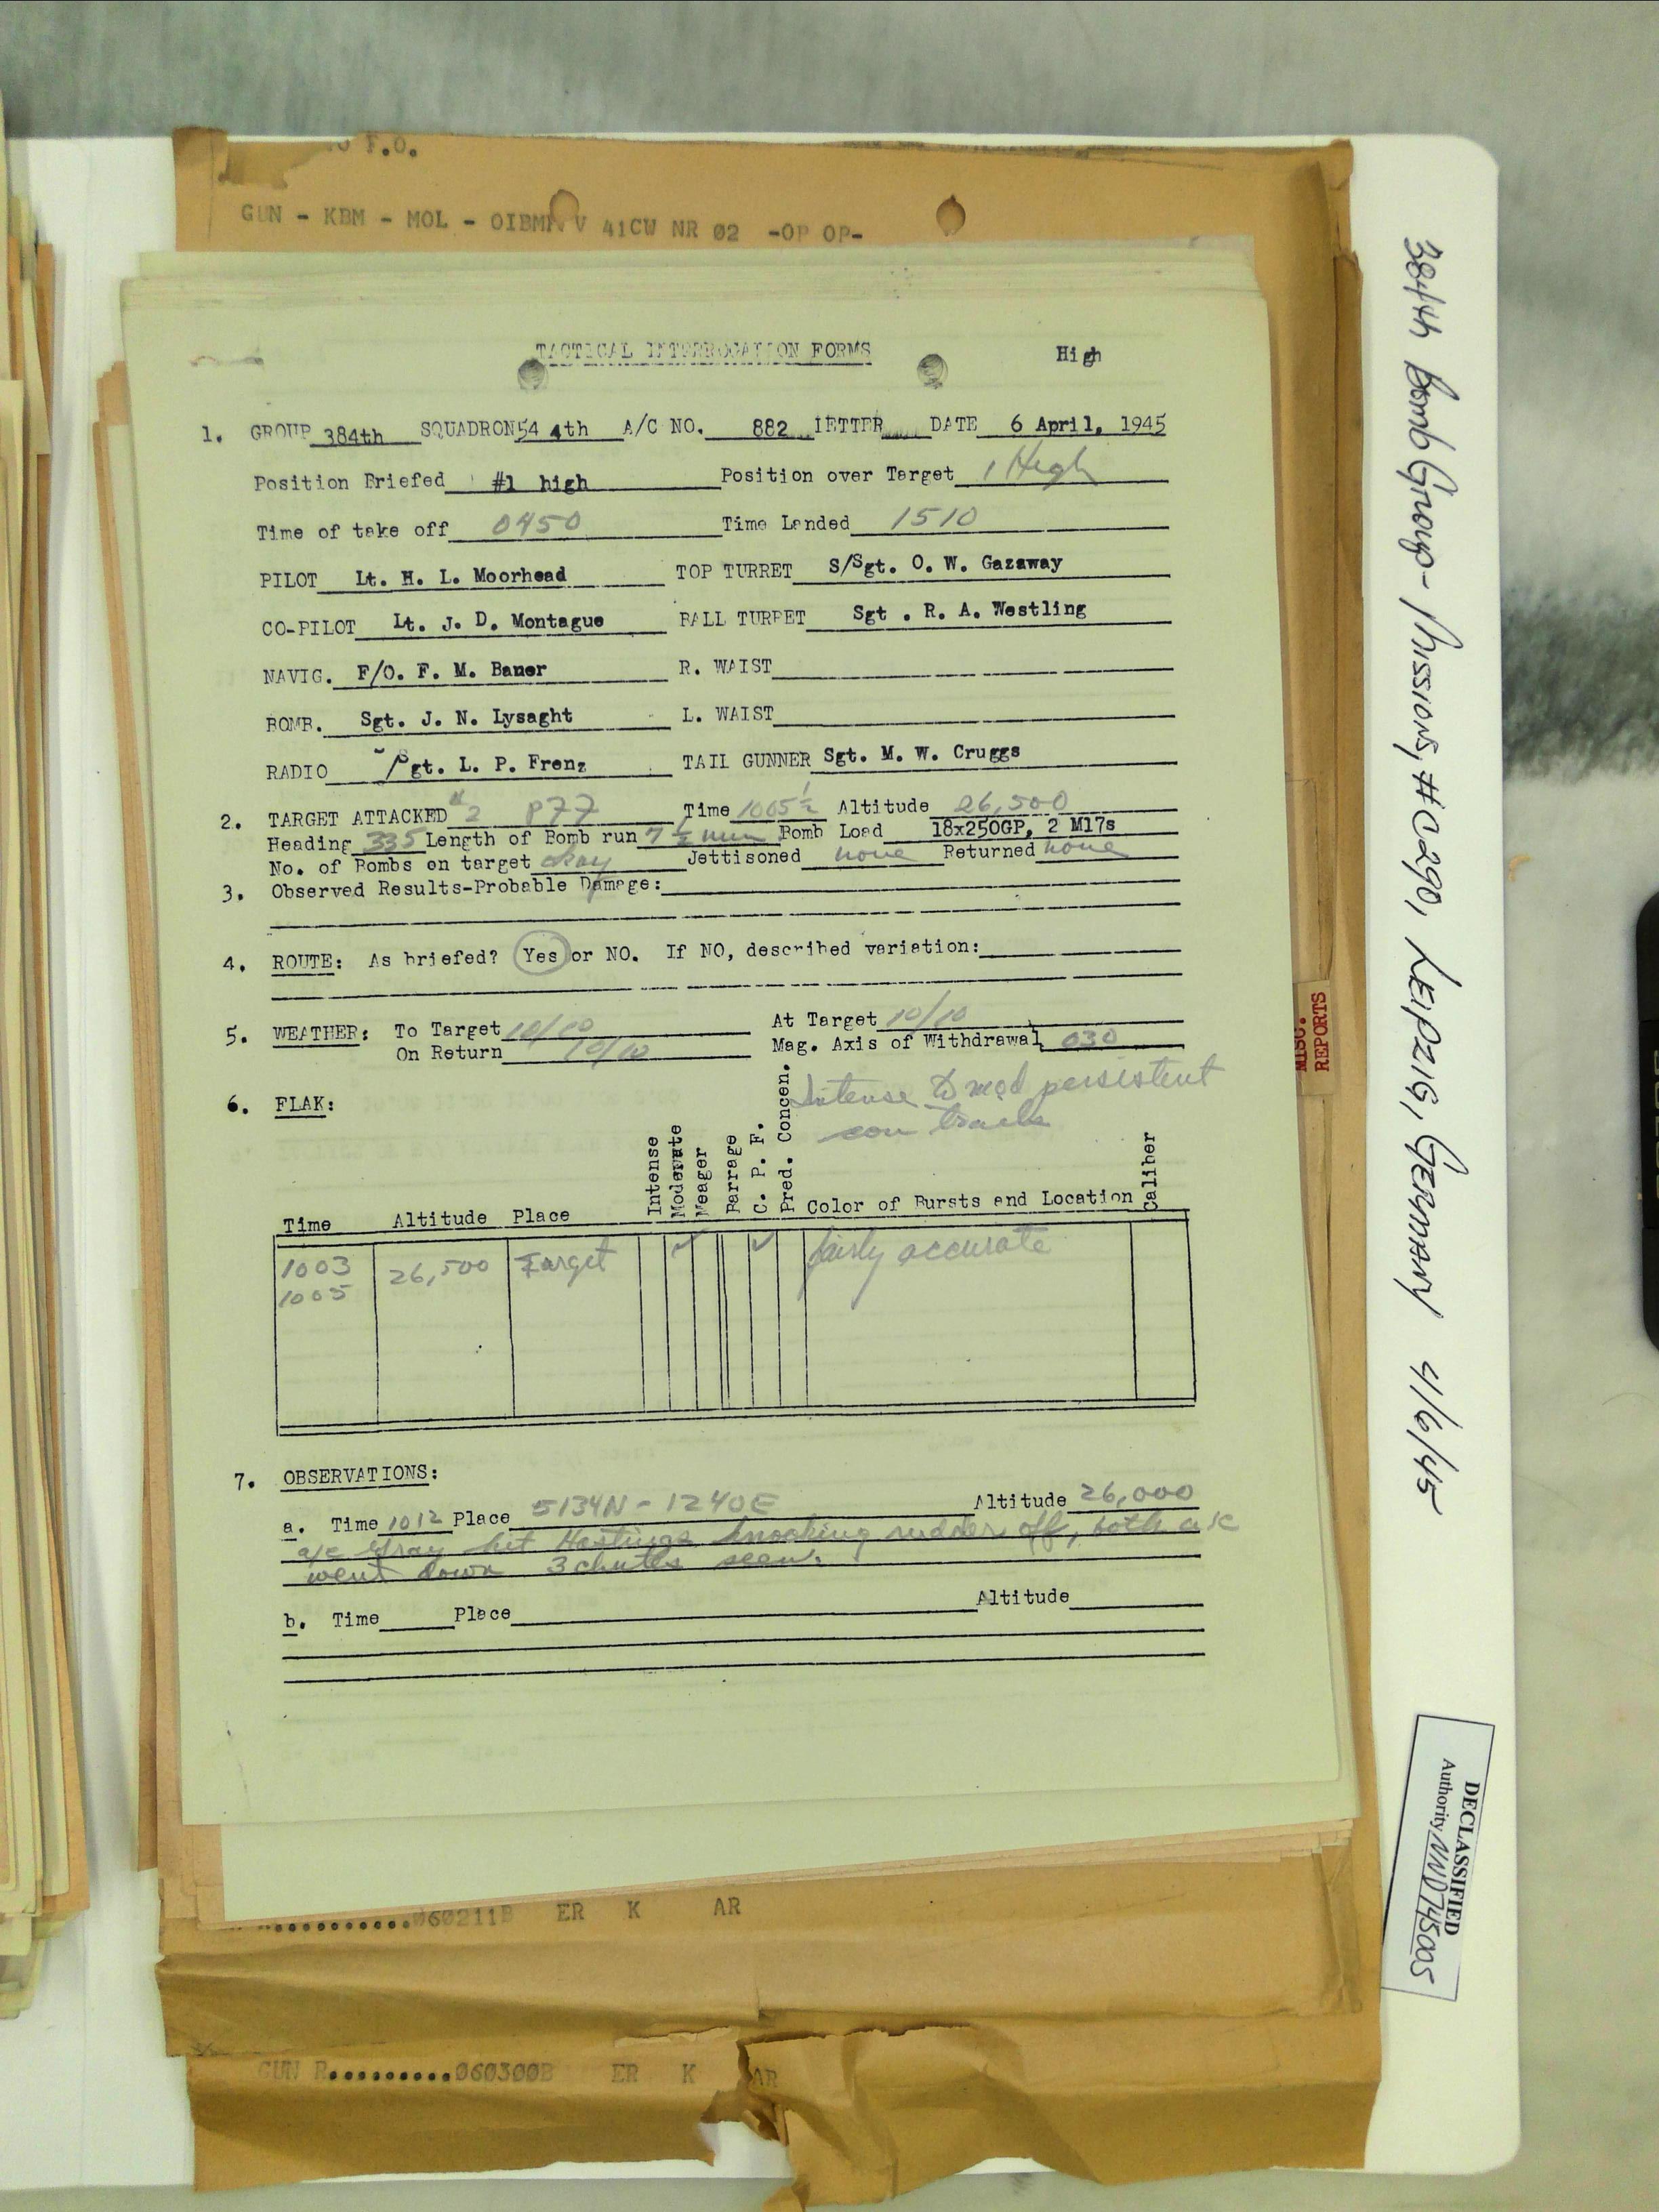 F.O.
GUN - KBM - MOL - OIBMN V 41CW NR 02 -OP OP-
TACTICAL INTERROGATION FORMS High
1. GROUP 384th SQUADRON 544th A/C NO. 882 LETTER DATE 6 April, 1945
Position Briefed #1 high Position over Target 1 High
Time of take off 0450 Time Landed 1510
PILOT Lt. H. L. Moorhead TOP TURRET S/Sgt. O. W. Gazaway
CO-PILOT Lt. J. D. Montague BALL TURRET Sgt . R. A. Westling
NAVIG. F/O. F. M. Baner R. WAIST
BOMB. Sgt. J. N. Lysaght L. WAIST
RADIO Sgt. L. P. Frenz TAIL GUNNER Sgt. M. W. Cruggs
2. TARGET ATTACKED #2 P77 Time 1005½ Altitude 26,500
Heading 335 Length of Bomb run 7 ½ min Bomb Load 18x250GP, 2 M17s
No. of Bombs on target okay Jettisoned none Returned none
3. Observed Results-Probable Damage:
4. ROUTE: As briefed? Yes or NO. If NO, described variation:
5. WEATHER: To Target 10/10 At Target 10/10
On Return 10/10 Mag. Axis of Withdrawal 030
6. FLAK: Intense to mod persistent
con trails
Time Altitude Place Intense Moderate Meager Barrage C. P. F. Pred. Concen. Color of Bursts and Location Caliber
1003 26,500 Target ✓ ✓ fairly accurate
1005
7. OBSERVATIONS:
a. Time 1012 Place 5134N - 1240E Altitude 26,000
a/c Gray hit Hastings knocking rudder off, both a/c
went down 3 chutes seen.
b. Time Place Altitude
060211B ER K AR
GUN R..........060300B ER K AR
MISC. REPORTS
384th Bomb Group - Missions, #0290, LEIPZIG, GERMANY 4/6/45
DECLASSIFIED
Authority NND745005